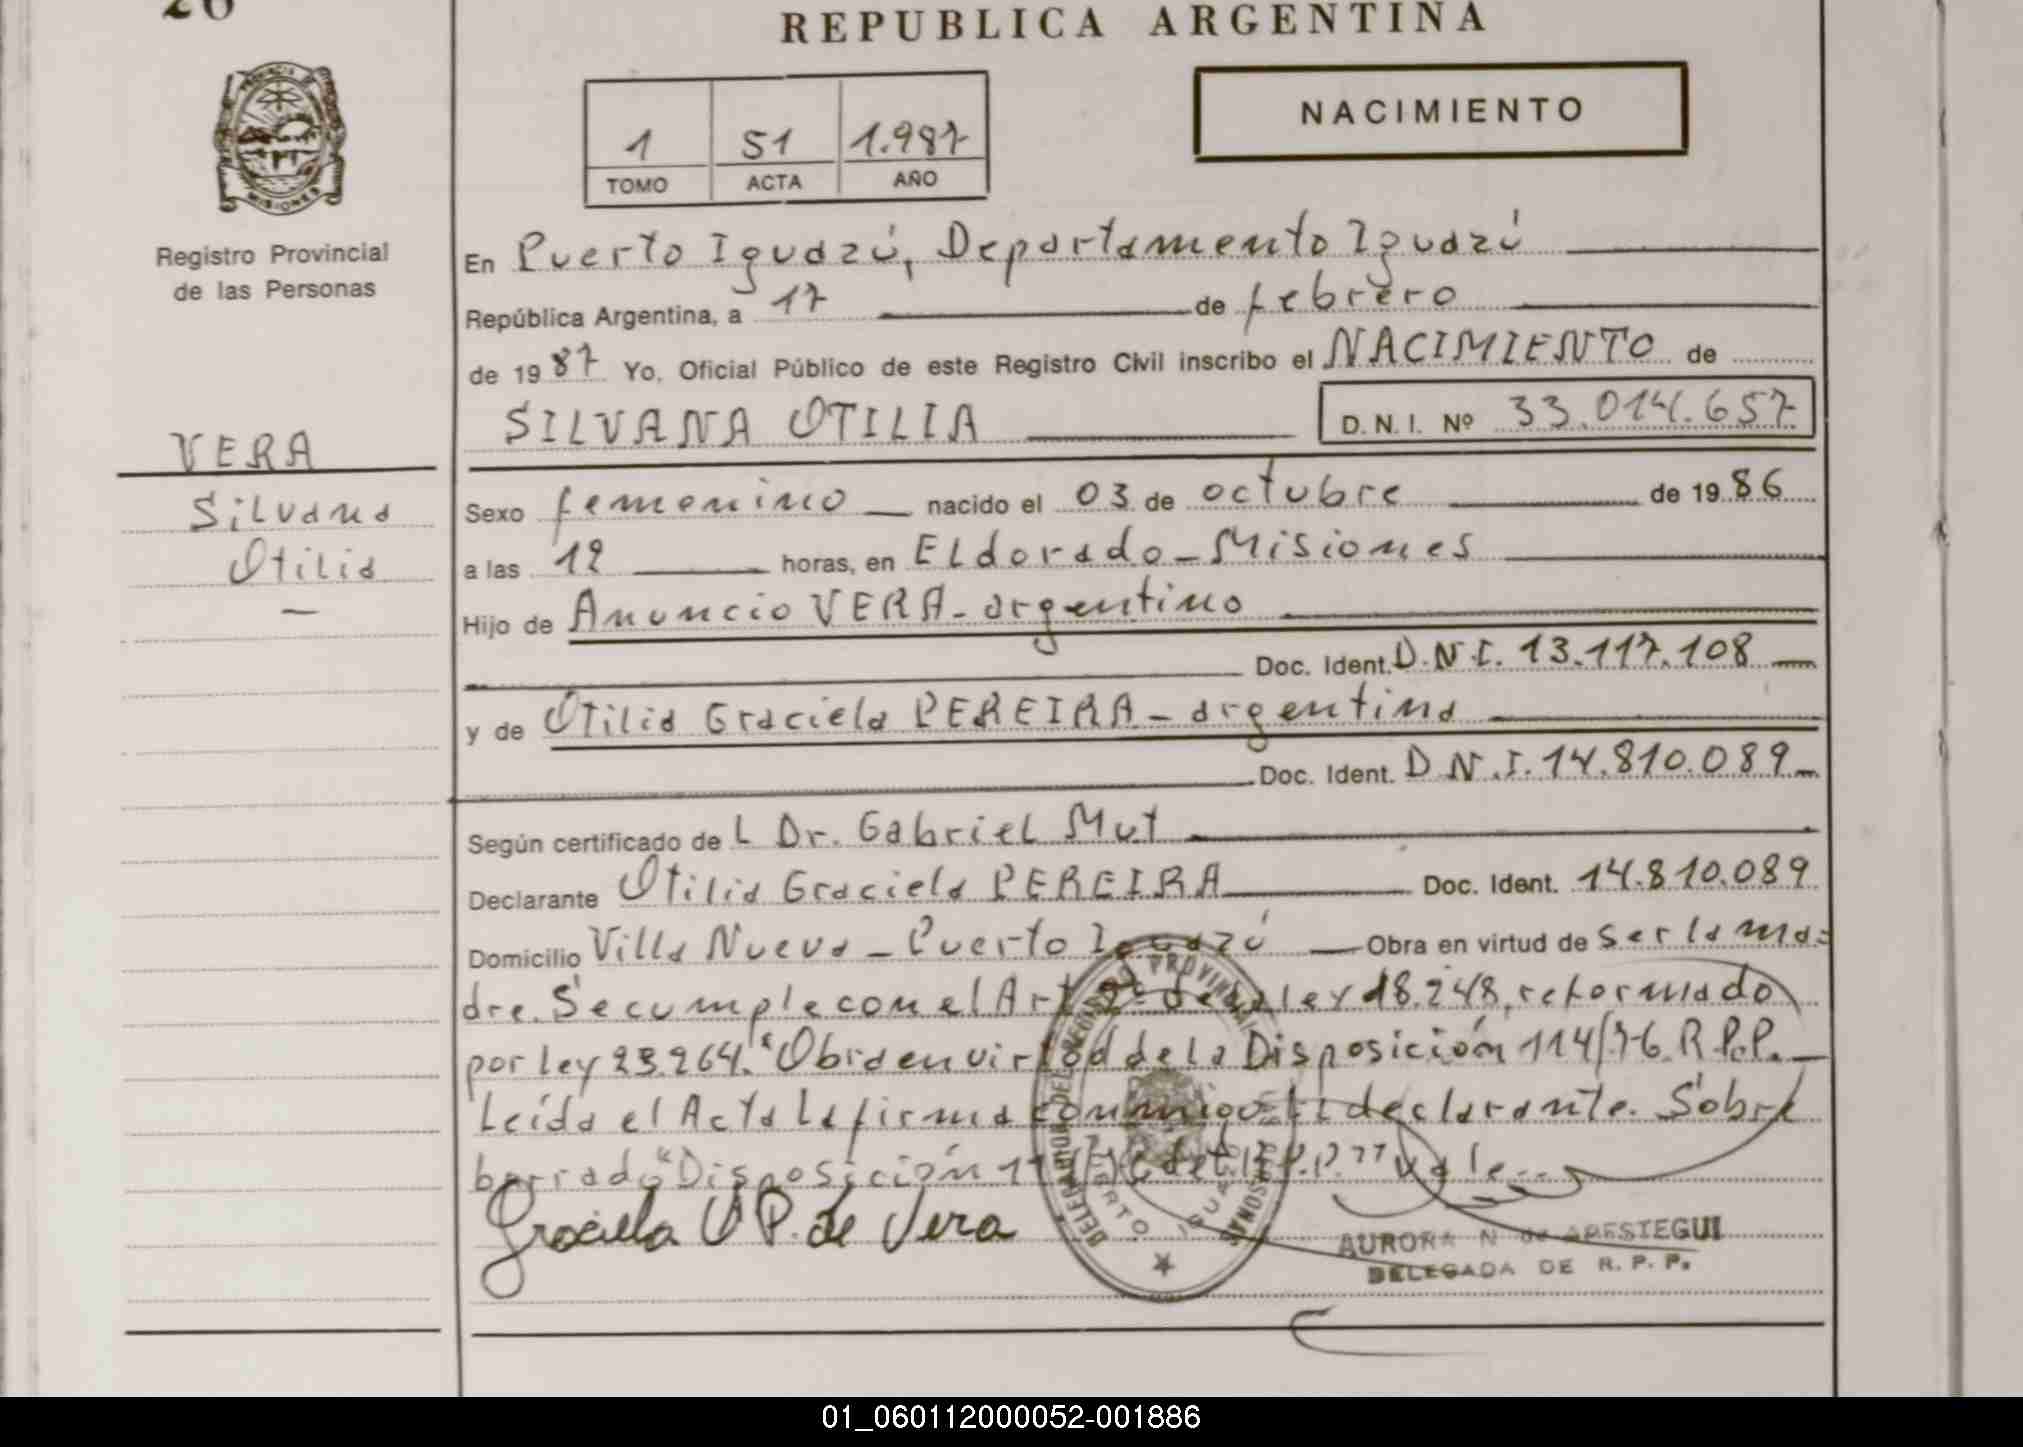 26
REPUBLICA ARGENTINA
PROVINCIA DE MISIONES
Registro Provincial
de las Personas
1 51 1.987
TOMO ACTA AÑO
NACIMIENTO
En Puerto Iguazú, Departamento Iguazú
República Argentina, a 17 de febrero
de 1987 Yo, Oficial Público de este Registro Civil inscribo el NACIMIENTO de
SILVANA OTILIA D.N.I. Nº 33.014.657
VERA
Silvana
Otilia
Sexo femenino nacido el 03 de octubre de 1986
a las 12 horas, en ELdorado - Misiones
Hijo de Anuncio VERA - argentino
Doc. Ident. D.N.I. 13.117.108
y de Otilia Graciela PEREIRA - argentina
Doc. Ident. D.N.I. 14.810.089
Según certificado de L Dr. Gabriel Mut
Declarante Otilia Graciela PEREIRA Doc. Ident. 14.810.089
Domicilio Villa Nueva - Puerto Iguazú Obra en virtud de ser la ma=
dre. Se cumple con el Art. 2º de la ley 18.248, reformado
por ley 23.264. "Obra en virtud de la Disposición 114/76 R.P.P.
Leída el Acta La firma conmigo la declarante. Sobre
borrado "Disposición 114/76 del R.P.P." vale...
Graciela O P. de Vera
DELEGACION DEL REGISTRO PROVINCIAL DE LAS PERSONAS
PUERTO IGUAZU
AURORA N de ARESTEGUI
DELEGADA DE R. P. P.
01_060112000052-001886